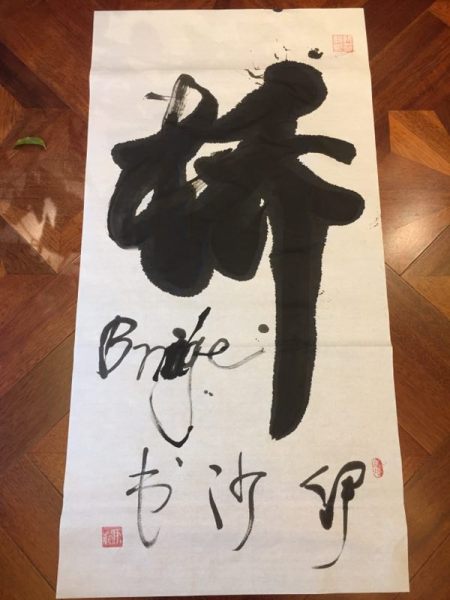 桥
Bridge
伊沙书